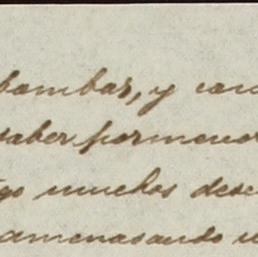 bombas, y cua
saber pormenor
go muchos dese
amenasando u